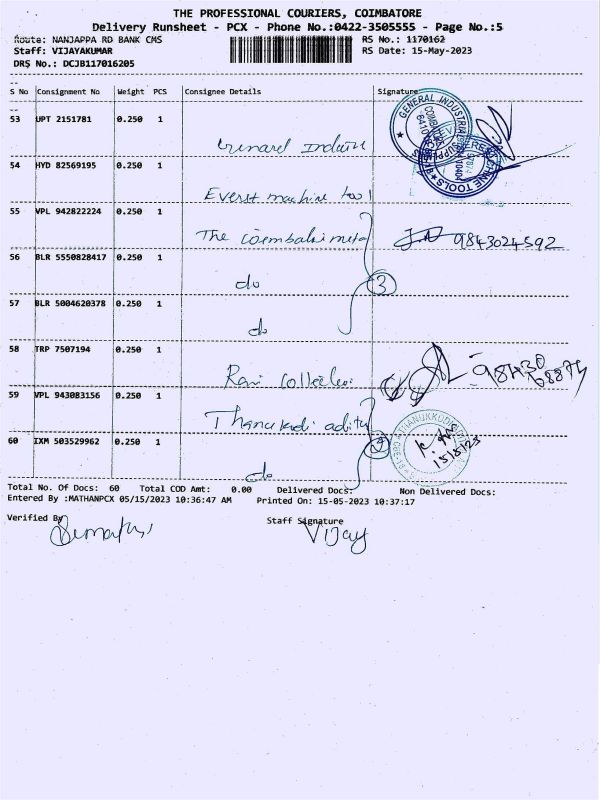 THE PROFESSIONAL COURIERS, COIMBATORE
Delivery Runsheet - PCX - Phone No.:0422-3505555 - Page No.:5
Route: NANJAPPA RD BANK CMS RS No.: 1170162
Staff: VIJAYAKUMAR RS Date: 15-May-2023
DRS No.: DCJB117016205
S No Consignment No Weight PCS Consignee Details Signature
53 UPT 2151781 0.250 1
GENERAL INDUSTRIAL
54 HYD 82569195 0.250 1
Everst machine tool
55 VPL 942822224 0.250 1
The 9843024592
56 BLR 5550828417 0.250 1
do 3
57 BLR 5004620378 0.250 1
do
58 TRP 7507194 0.250 1
59 VPL 943083156 0.250 1
60 IXM 503529962 0.250 1
15/5/23
do
Total No. Of Docs: 60 Total COD Amt: 0.00 Delivered Docs: Non Delivered Docs:
Entered By :MATHANPCX 05/15/2023 10:36:47 AM Printed On: 15-05-2023 10:37:17
Verified By Staff Signature
Vijay